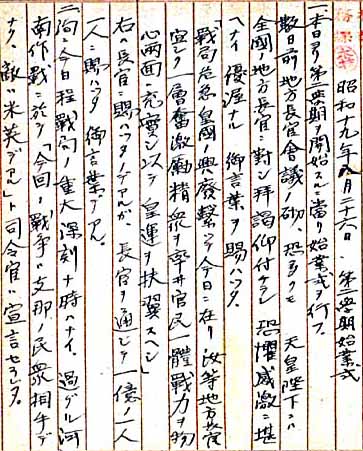 昭和十九年八月二十六日 第二学期始業式
一、本日ヨリ第二学期ヲ開始スルニ当リ始業式ヲ行フ。
数日前地方長官会議ノ砌、恐多クモ 天皇陛下ニハ
全国ノ地方長官ニ対シ拝謁仰付ケラレ 恐懼感激ニ堪
ヘナイ優渥ナル 御言葉ヲ賜ハッタ。
「戦局危急皇国ノ興廃繋リテ今日ニ在リ汝等地方長官
宜シク一層奮激励精衆ヲ率ヰ官民一體戦力ヲ物
心両面ニ充実シ以テ皇運ヲ扶翼スヘシ」
右ハ長官ニ賜ハッタノデアルガ、長官ヲ通シテ一億ノ一人
一人ニ賜ハッタ御言葉デアル。
二、尚、今日程戦局ノ重大深刻ナ時ハナイ。過グル河
南作戦ニ於テ「今回ノ戦争ハ支那ノ民衆相手デ
ナク、敵ハ米英デアル」ト司令官ハ宣言セラレタ。